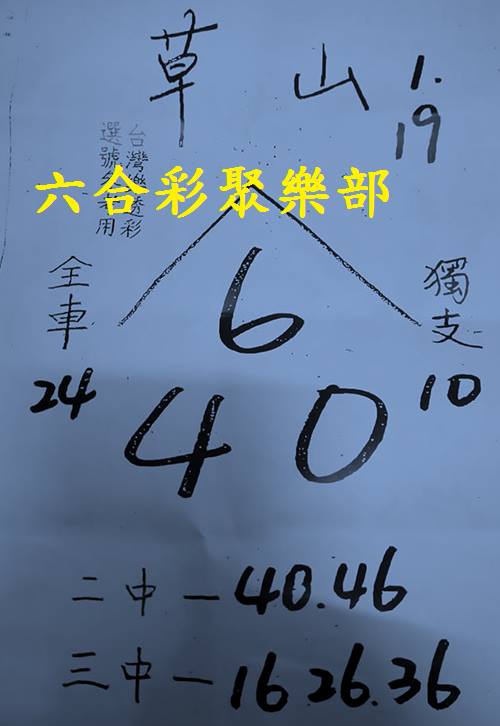 草山 1.
19
台灣樂透彩
選號參考用
六合彩聚樂部
全車
24
獨支
10
6
4 0
二中－40.46
三中－16 26.36